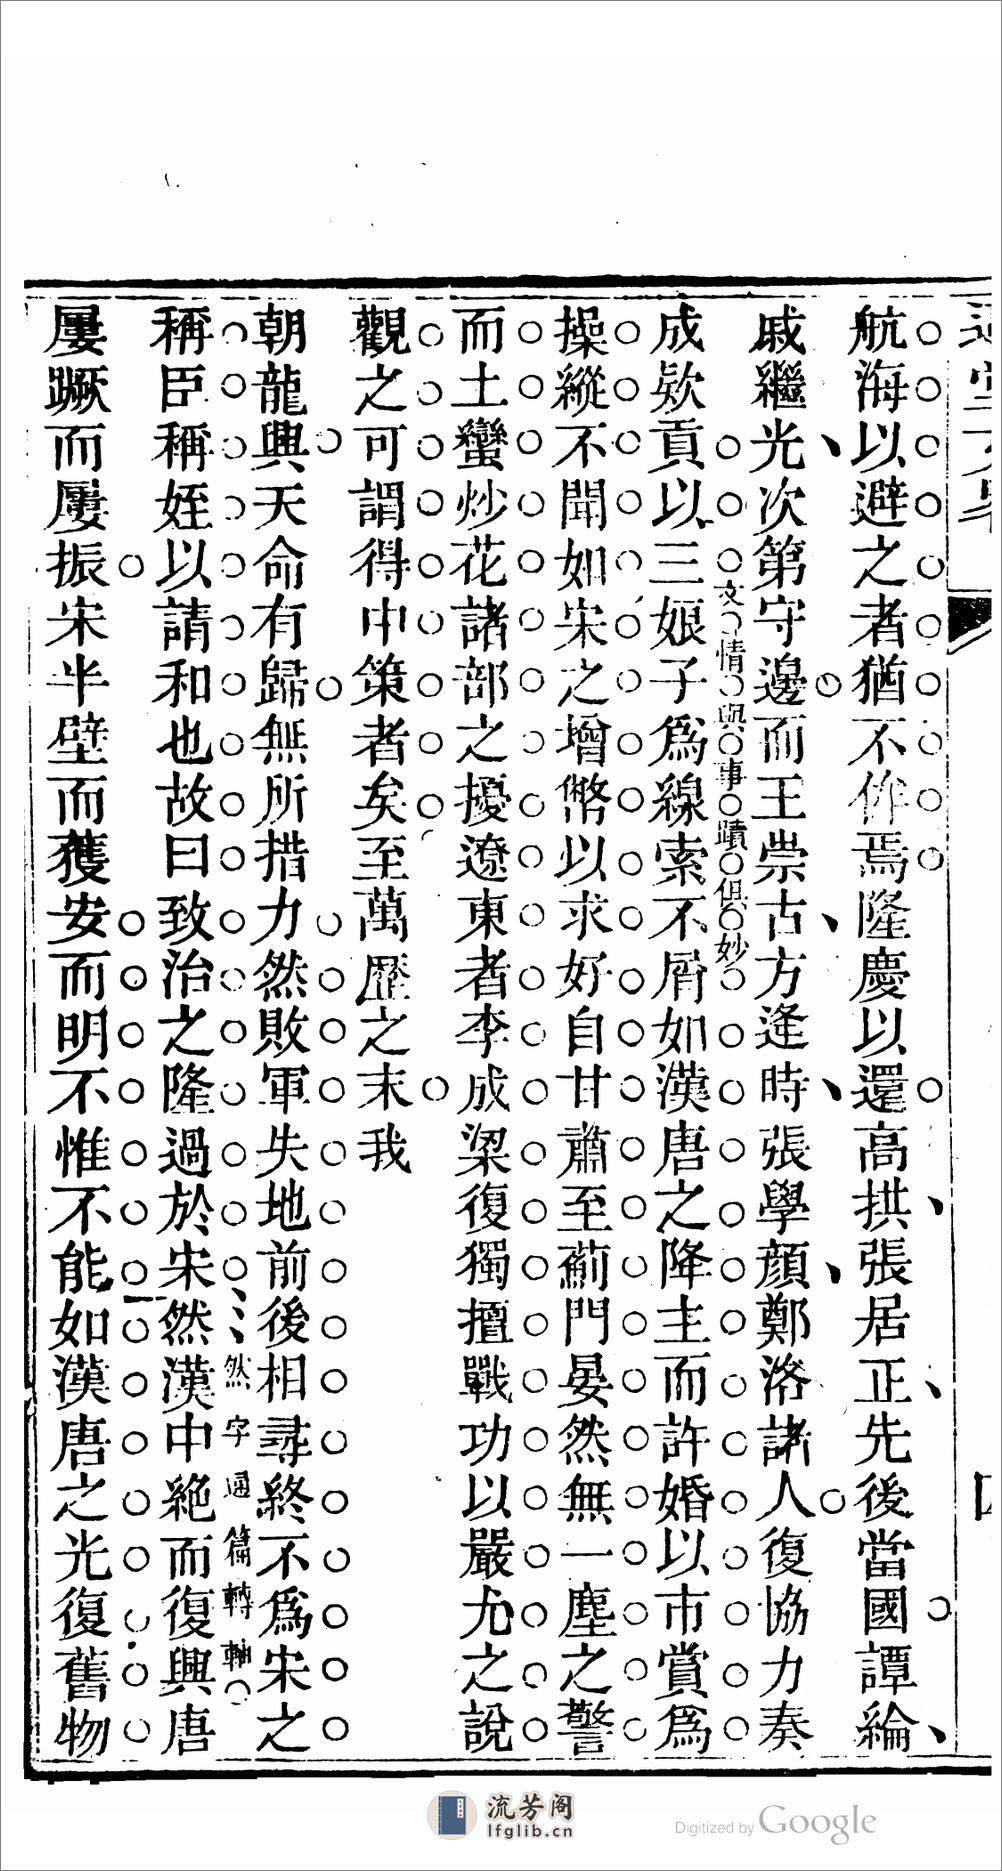 航海以避之者猶不侔焉隆慶以還高拱張居正先後當國譚綸
戚繼光次第守邊而王崇古方逢時張學顏鄭洛諸人復協力奏
文情與事蹟俱妙
成欵貢以三娘子爲線索不屑如漢唐之降主而許婚以市賞爲
操縱不聞如宋之增幣以求好自甘肅至薊門晏然無一塵之警
而土蠻炒花諸部之擾遼東者李成梁復獨擅戰功以嚴尤之說
觀之可謂得中策者矣至萬歷之末我
朝龍興天命有歸無所措力然敗軍失地前後相尋終不爲宋之
然字通篇轉軸
稱臣稱姪以請和也故曰致治之隆過於宋然漢中絶而復興唐
屢蹶而屢振宋半壁而獲安而明不惟不能如漢唐之光復舊物
流芳阁
lfglib.cn
Digitized by Google